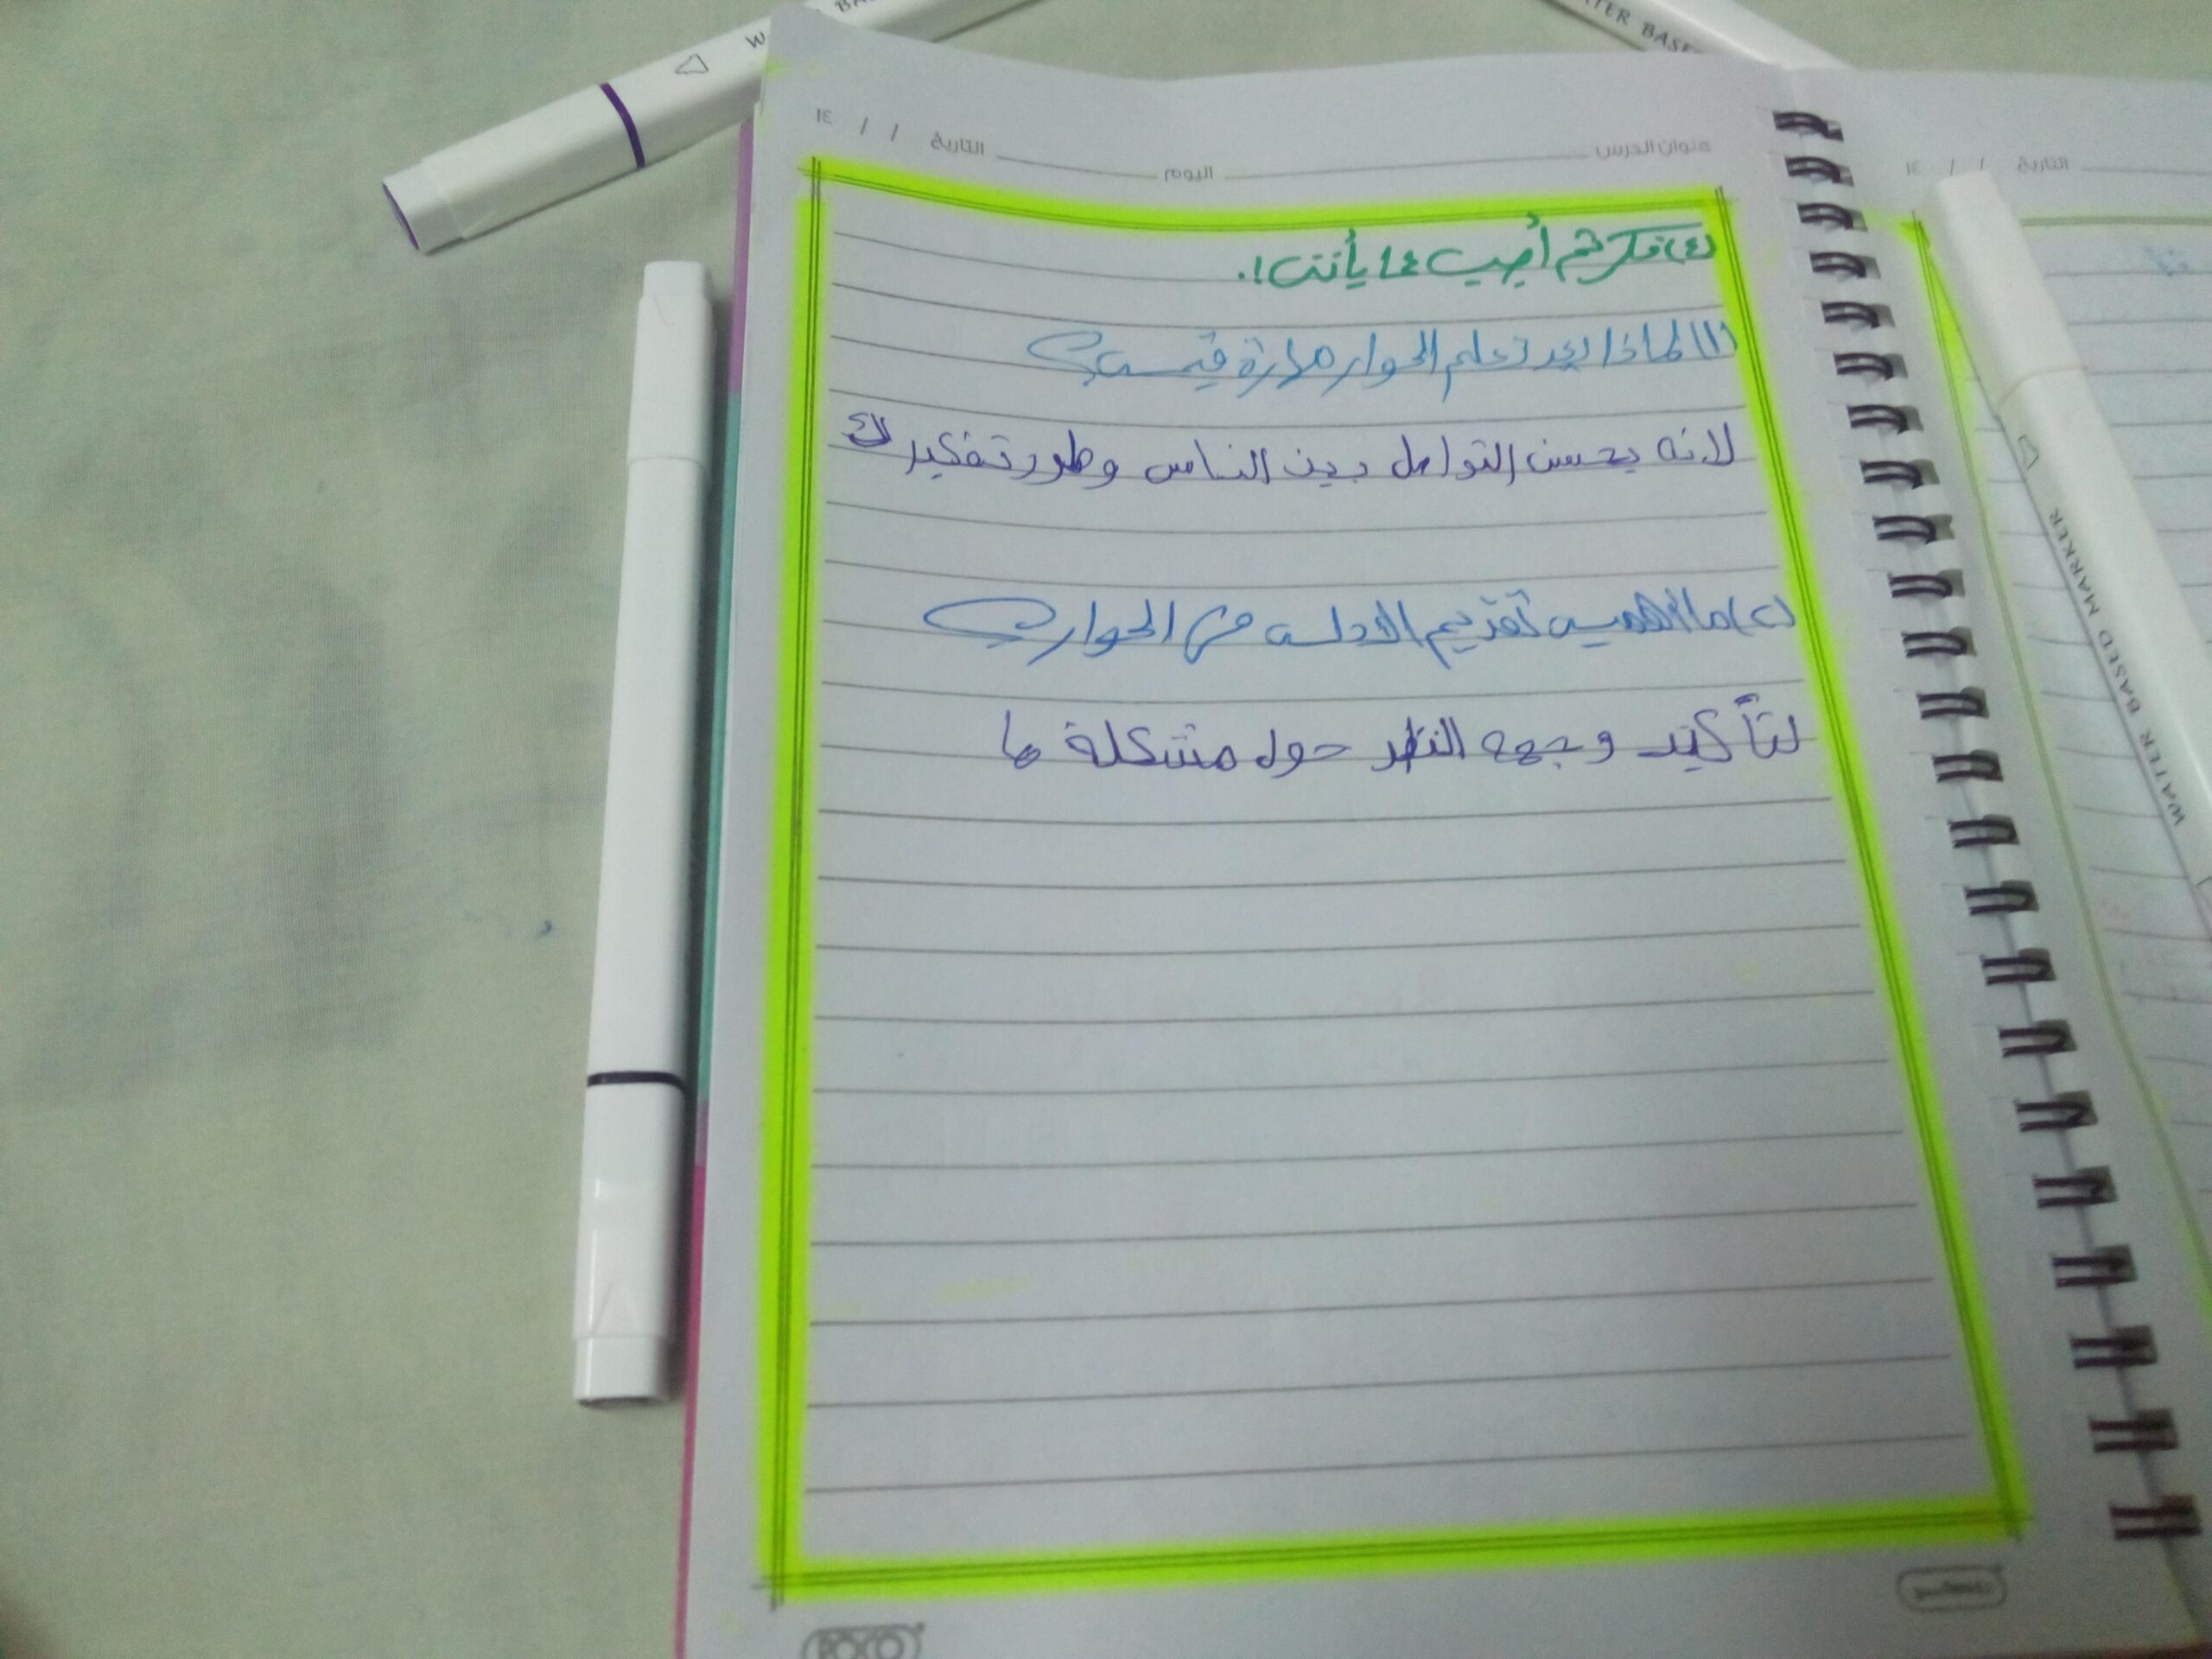 WATER BASED
عنوان الدرس اليوم التاريخ / / ١٤
التاريخ / / ١٤
(٤) فكر ثم أجيب عما يأتي:
(١) لماذا يعد تعلم الحوار مهارة قيمة؟
لانه يحسن التواصل بين الناس وطور تفكيرك
(٢) ما أهمية تقديم الأدلة في الحوار؟
لتأكيد وجهه النظر حول مشكلة ما
WATER BASED MARKER
ROCO